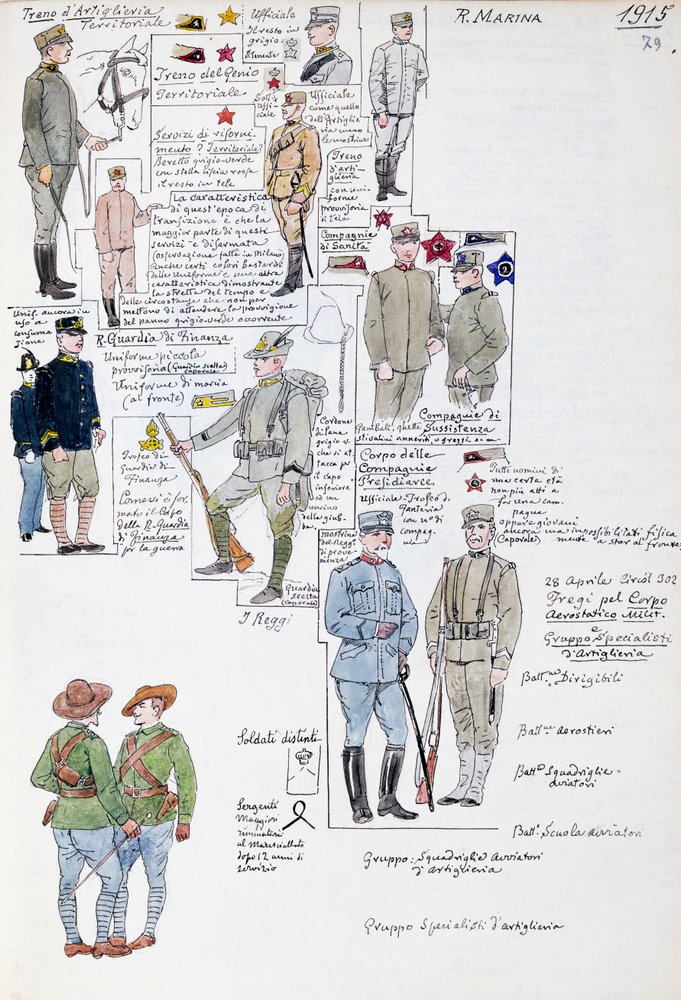 Treno d'Artiglieria
Territoriale
Ufficiale
Il resto in
grigio
R. MARINA
1915
79
Treno del Genio
Territoriale
Sott.
uffi-
ciale
Ufficiale
come quello
dell'Artiglie
ria meno
le mostrine
Servizi di riforni-
mento? Territoriale?
Beretto grigio-verde
con stella liscia rossa
il resto in tela
Treno
d'arti-
glieria
con uni-
forme
provvisoria
di tela
La caratteristica
di quest'epoca di
transizione è che la
maggior parte di questi
servizi è disarmata
(osservazione fatta in Milano)
anche certi colori bastardi
delle uniforme è una altra
caratteristica dimostrante
la stretta del tempo e
delle circostanze che non per
mettono di attendere la provvigione
del panno grigio-verde occorrente
Compagnie
di Sanità
2
Unif. ancora in
uso a
consuma
zione
R. Guardia di Finanza
Uniforme piccola
provvisoria (Guardia scelta)
caporale
Uniforme di marcia
(al fronte)
Trofeo di
Guardia di
Finanza
Come si è for
mato il Capo
della R. Guardia
di Finanza
per la guerra
Cordone
di lana
grigio-v.
che si at
tacca per
il capo
inferiore
ad un
uncino
della giub-
ba
Guardia
scelta
(Caporale)
I Reggi
Compagnie di
Sussistenza
Gambali, ghette
stivalini anneriti o grezzi
Corpo delle
Compagnie
Presidiarie
Ufficiale - Trofeo di
fanteria
con n° di
compag-
nia
mostrina
del Regg.
di prove-
nienza
Tutti uomini di
una certa età
non più atti a
far una cam
pagna
oppure giovani
ancora ma impossibilitati fisica
mente a star al fronte
(Caporale)
28 Aprile Circol 302
Fregi pel Corpo
Aerostatico Milit.
e
Gruppo Specialisti
d'Artiglieria
Batt.ne Dirigibili
Batt.ne Aerostieri
Batt.ne Squadriglie
aviatori
Batt.e Scuola aviatori
Soldati distinti
Sergenti
Maggiori
al Maresciallato
dopo 12 anni di
servizio
Gruppo: Squadriglie Aviatori
d'Artiglieria
Gruppo Specialisti d'artiglieria